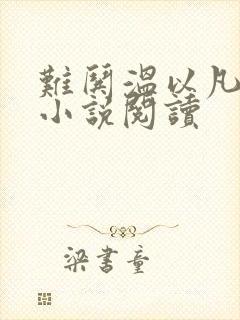 難鬨溫以凡
小說閱讀
梁書童